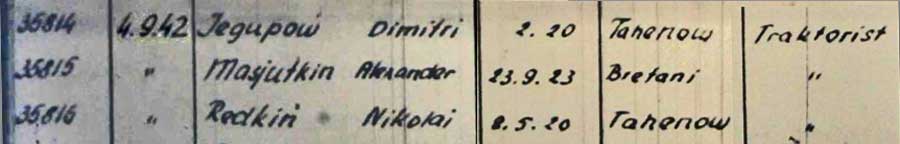 35814 4.9.42 Jegupow Dimitri 2.20 Tahenow Traktorist
35815 " Masjutkin Alexander 23.9.23 Bretani "
35816 " Redkin Nikolai 8.5.20 Tahenow "